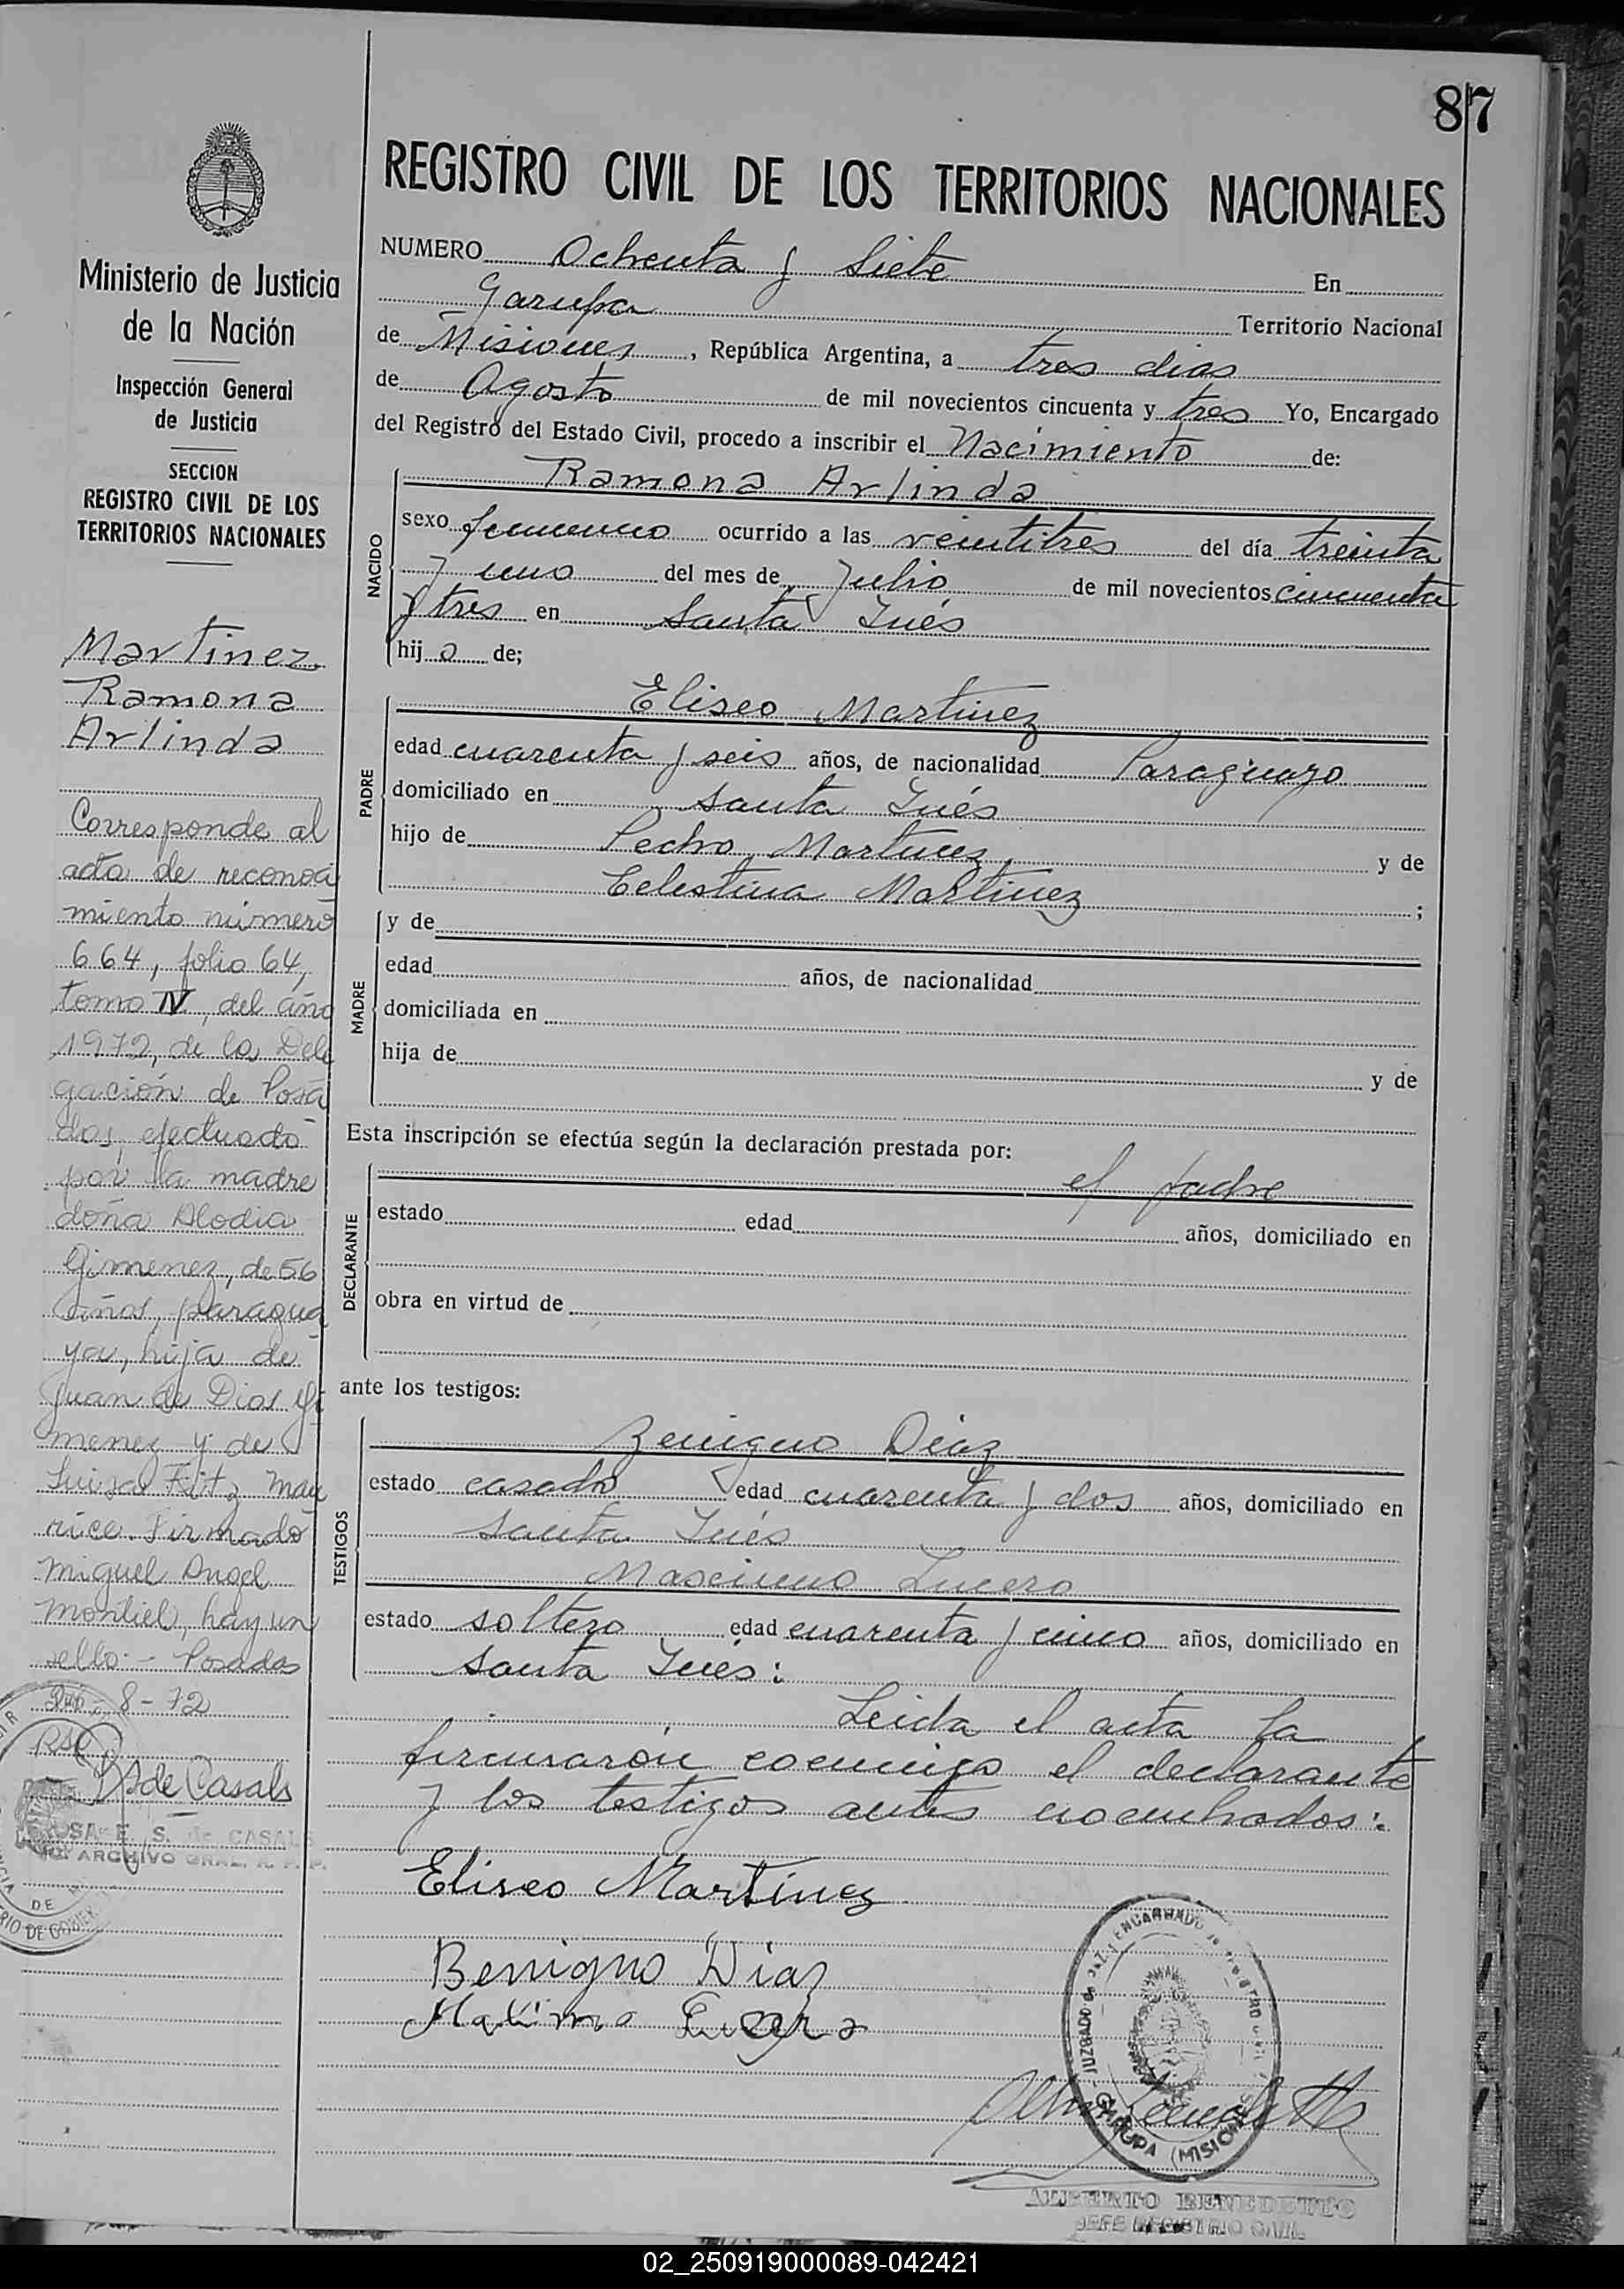 87
REGISTRO CIVIL DE LOS TERRITORIOS NACIONALES
NUMERO Ochenta y Siete En
Garupa Territorio Nacional
de Misiones, República Argentina, a tres dias
de Agosto de mil novecientos cincuenta y tres Yo, Encargado
del Registro del Estado Civil, procedo a inscribir el Nacimiento de:
NACIDO
Ramona Arlinda
sexo femenino ocurrido a las veintitres del día treinta
y uno del mes de Julio de mil novecientos cincuenta
y tres en Santa Inés
hija de;
PADRE
Eliseo Martinez
edad cuarenta y seis años, de nacionalidad Paraguayo
domiciliado en Santa Inés
hijo de Pedro Martinez, y de
Celestina Martinez ;
MADRE
y de
edad años, de nacionalidad
domiciliada en
hija de y de
Esta inscripción se efectúa según la declaración prestada por:
DECLARANTE
el padre
estado edad años, domiciliado en
obra en virtud de
ante los testigos:
TESTIGOS
Benigno Diaz
estado casado edad cuarenta y dos años, domiciliado en
Santa Inés
Maximo Lucero
estado soltero edad cuarenta y cinco años, domiciliado en
Santa Inés:
Leida el acta la
firmarón conmigo el declarante
y los testigos antes nombrados:
Eliseo Martínez
Benigno Díaz
Maximo
JUZGADO de PAZ y ENCARGADO
GARUPA (MISIONES)
ALBERTO BENEDETTO
JEFE REGISTRO CIVIL
Ministerio de Justicia
de la Nación
Inspección General
de Justicia
SECCION
REGISTRO CIVIL DE LOS
TERRITORIOS NACIONALES
Martinez
Ramona
Arlinda
Corresponde al
acta de reconoci
miento número
664, folio 64,
tomo IV, del año
1972, de la Dele
gación de Posa
das, efectuado
por la madre
doña Alodia
Gimenez, de 56
años, paragua
ya, hija de
Juan de Dios Gi
menez y de
Luisa Fritz Mau
rice. Firmado
Miguel Angel
Montiel, hay un
sello.- Posadas
8-72
de Casals
E. S. de CASALS
ARCHIVO GRAL. R. P. P.
02_250919000089-042421